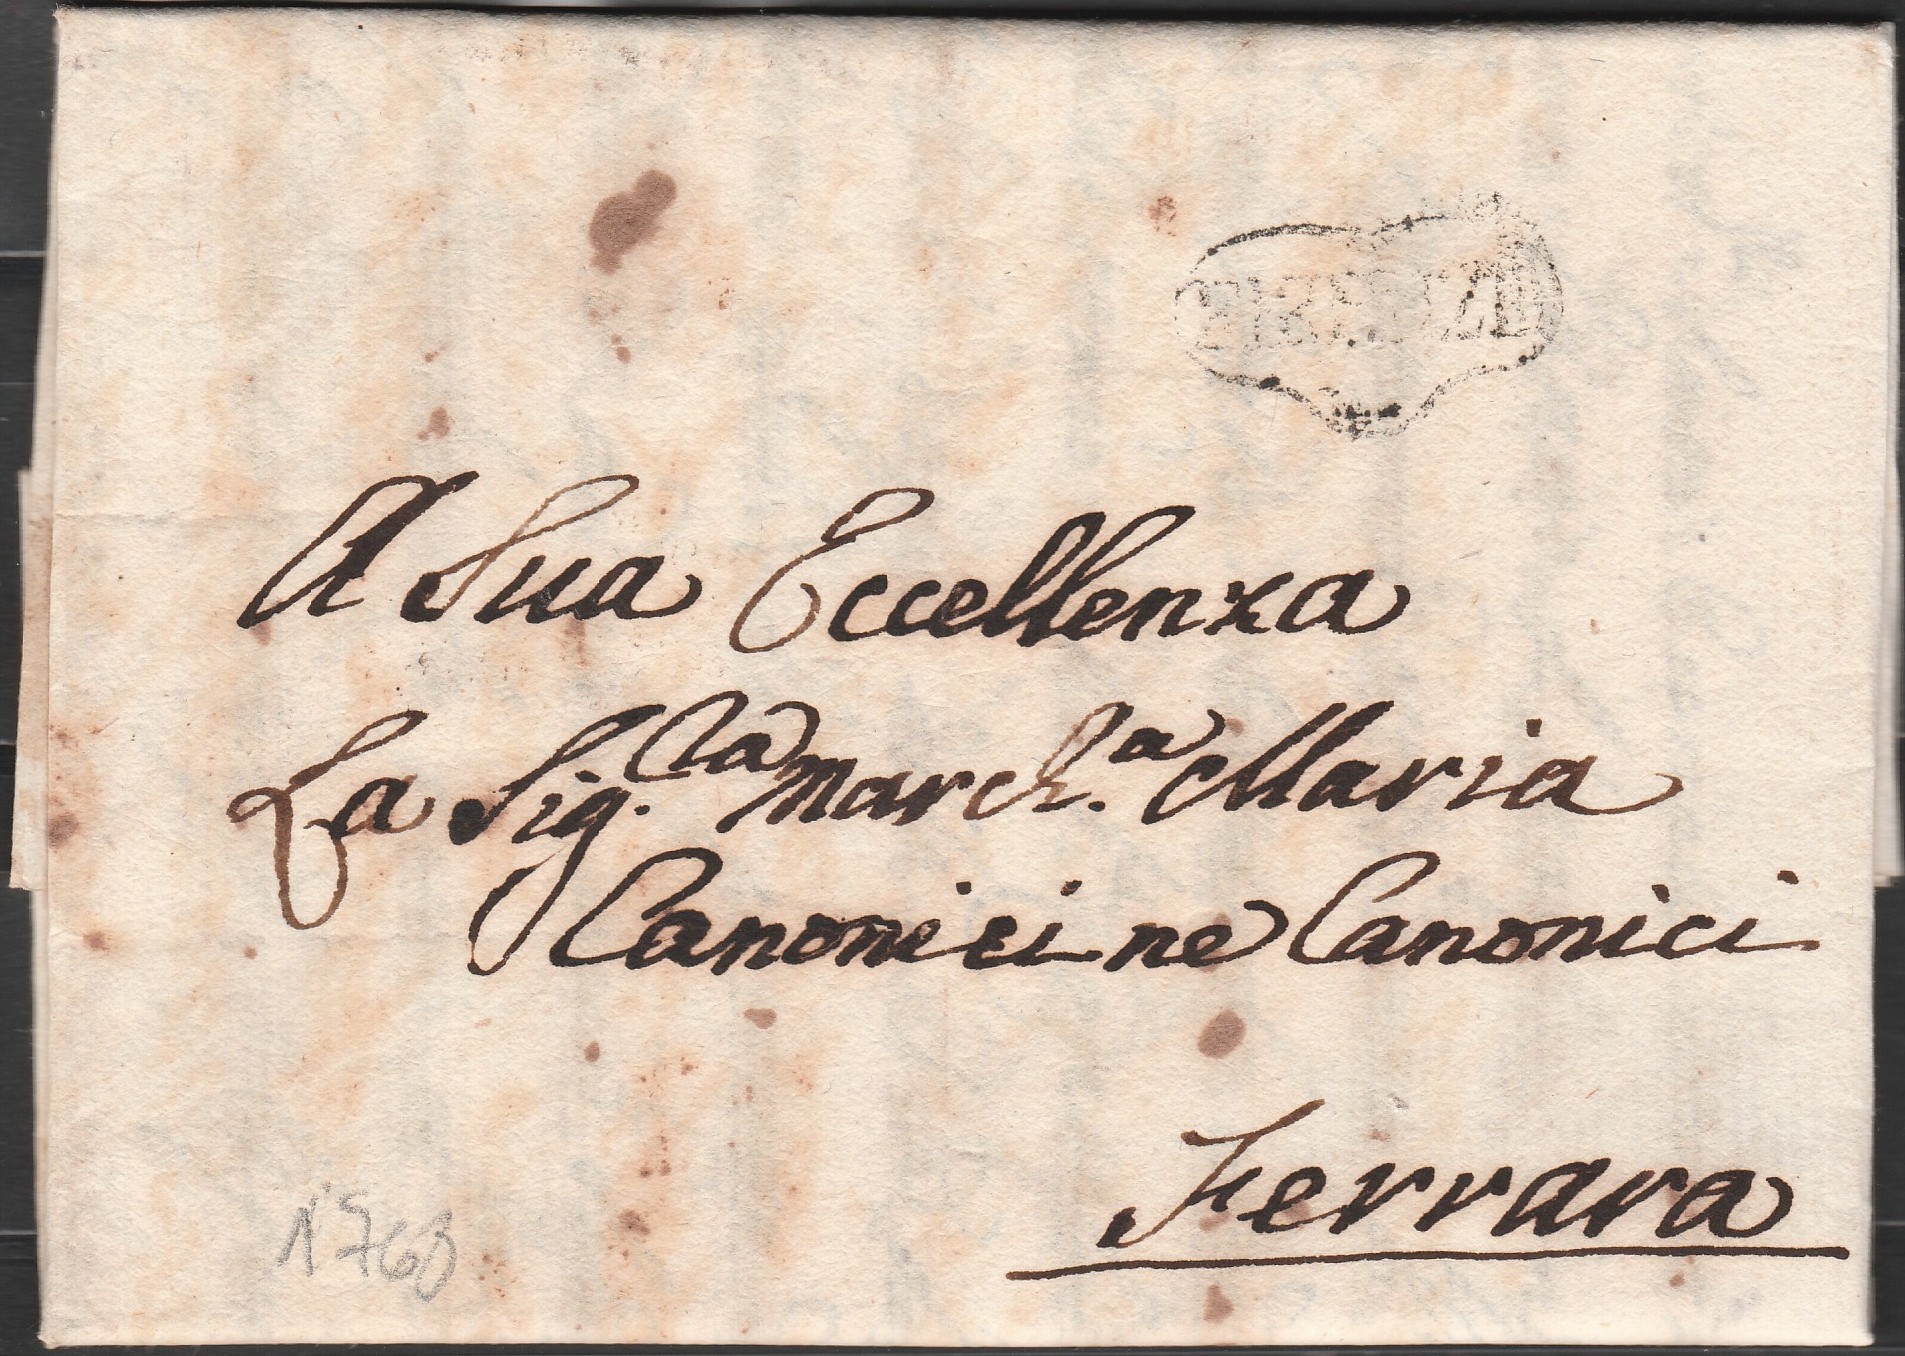 FIRENZE
A Sua Eccellenza
La Sig.ra March.a Maria
Canonici ne Canonici
Ferrara
1768